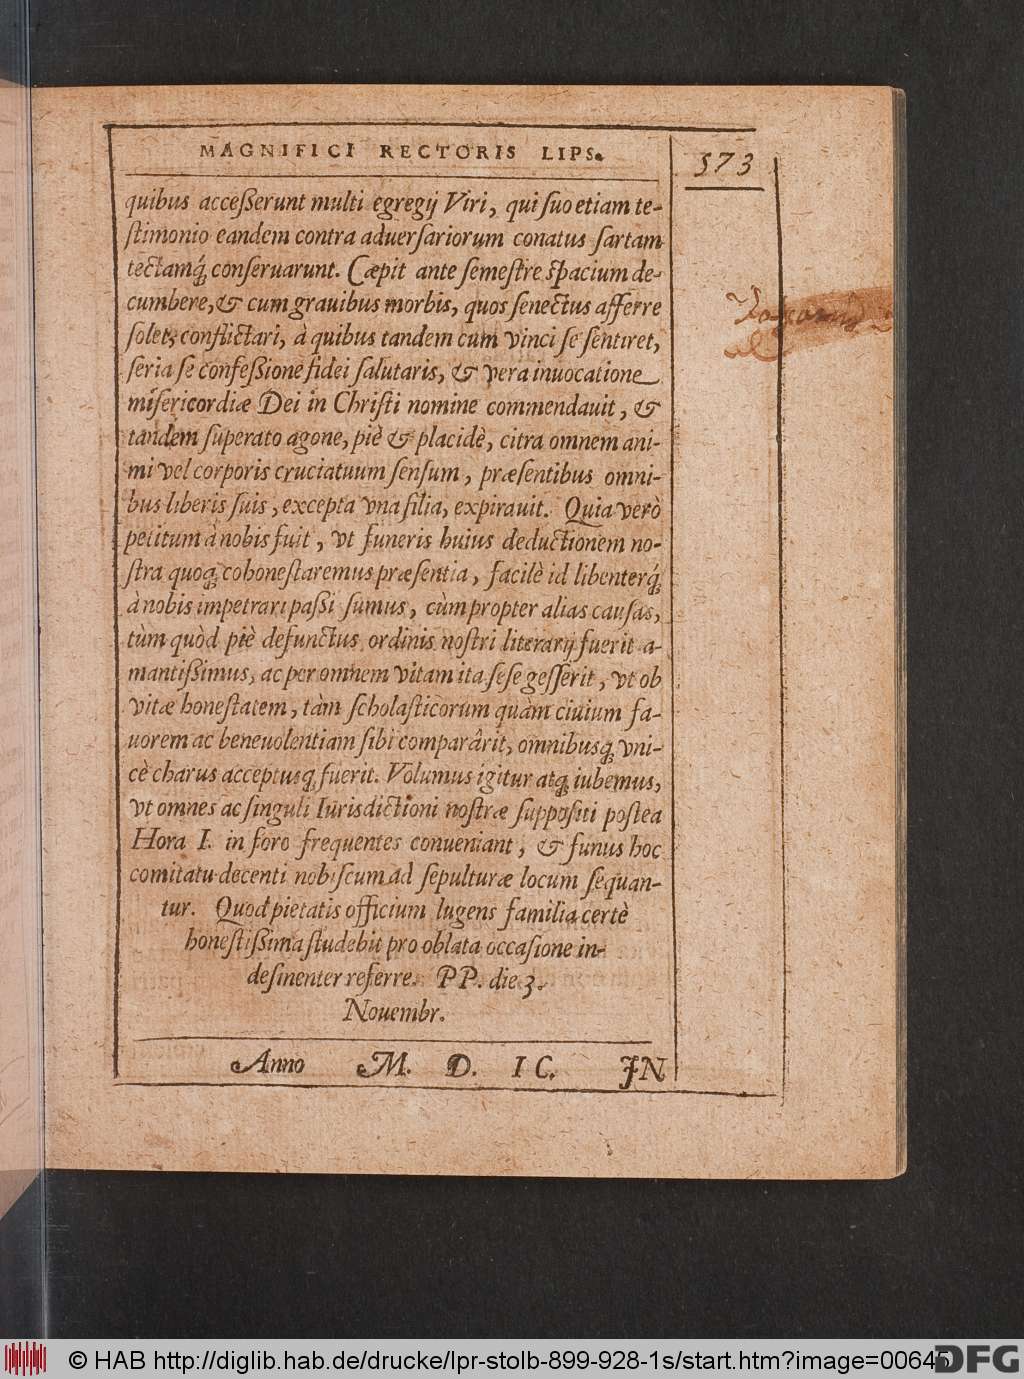 MAGNIFICI RECTORIS LIPS.
573
quibus acceßerunt multi egregij Viri, qui suo etiam te-
stimonio eandem contra aduersariorum conatus sartam
tectamq́; conseruarunt. Cæpit ante semestre spacium de-
cumbere, & cum grauibus morbis, quos senectus afferre
solet, conflictari, à quibus tandem cum vinci se sentiret,
seria se confeßione fidei salutaris, & vera inuocatione
misericordiæ Dei in Christi nomine commendauit, &
tandem superato agone, piè & placidè, citra omnem ani-
mi vel corporis cruciatuum sensum, præsentibus omni-
bus liberis suis, excepta vna filia, expirauit. Quia verò
petitum à nobis fuit, vt funeris huius deductionem no-
stra quoq; cohonestaremus præsentia, facilè id libenterq́;
à nobis impetrari paßi sumus, cùm propter alias causas,
tùm quòd piè defunctus ordinis nostri literarij fuerit a-
mantißimus, ac per omnem vitam ita sese gesserit, vt ob
vitæ honestatem, tàm scholasticorum quàm ciuium fa-
uorem ac beneuolentiam sibi comparârit, omnibusq; vni-
cè charus acceptusq; fuerit. Volumus igitur atq; iubemus,
vt omnes ac singuli Iurisdictioni nostræ suppositi postea
Hora I. in foro frequentes conueniant, & funus hoc
comitatu decenti nobiscum ad sepulturæ locum sequan-
tur. Quod pietatis officium lugens familia certè
honestißima studebit pro oblata occasione in-
desinenter referre. PP. die 3.
Nouembr.
Anno M. D. IC. IN
© HAB http://diglib.hab.de/drucke/lpr-stolb-899-928-1s/start.htm?image=00645
DFG